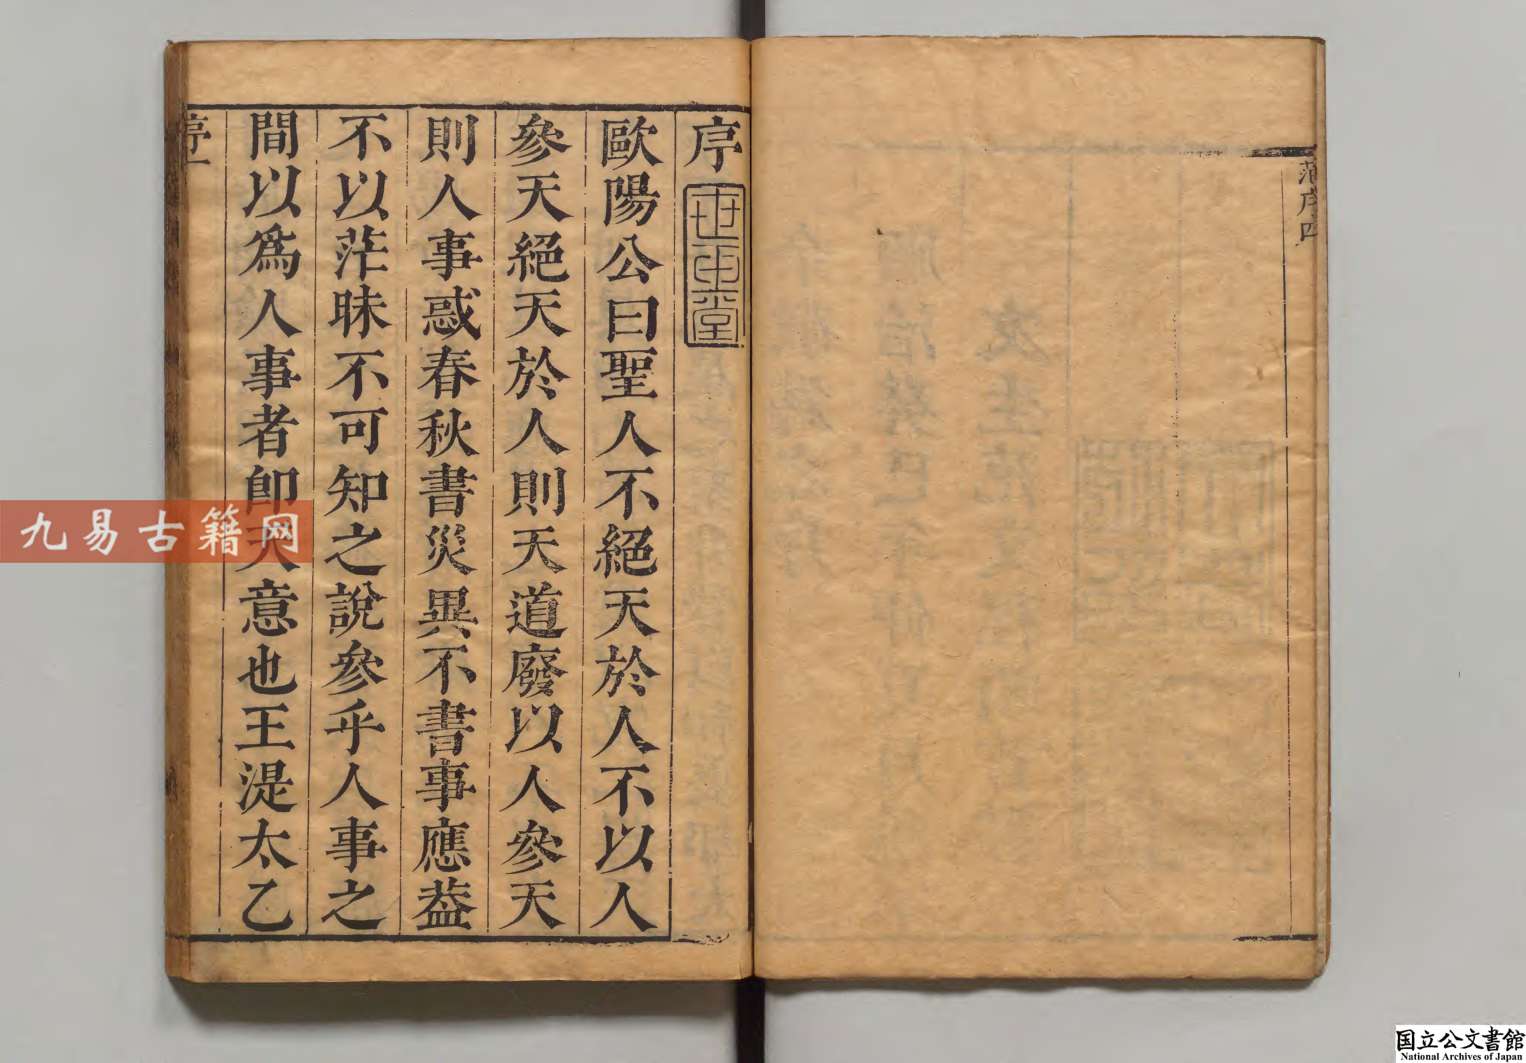 序
歐陽公曰聖人不絕天於人不以人
參天絕天於人則天道廢以人參天
則人事惑春秋書災異不書事應葢
不以茫昧不可知之說參乎人事之
間以爲人事者卽天意也王湜太乙
序一
九易古籍网
国立公文書館
National Archives of Japan